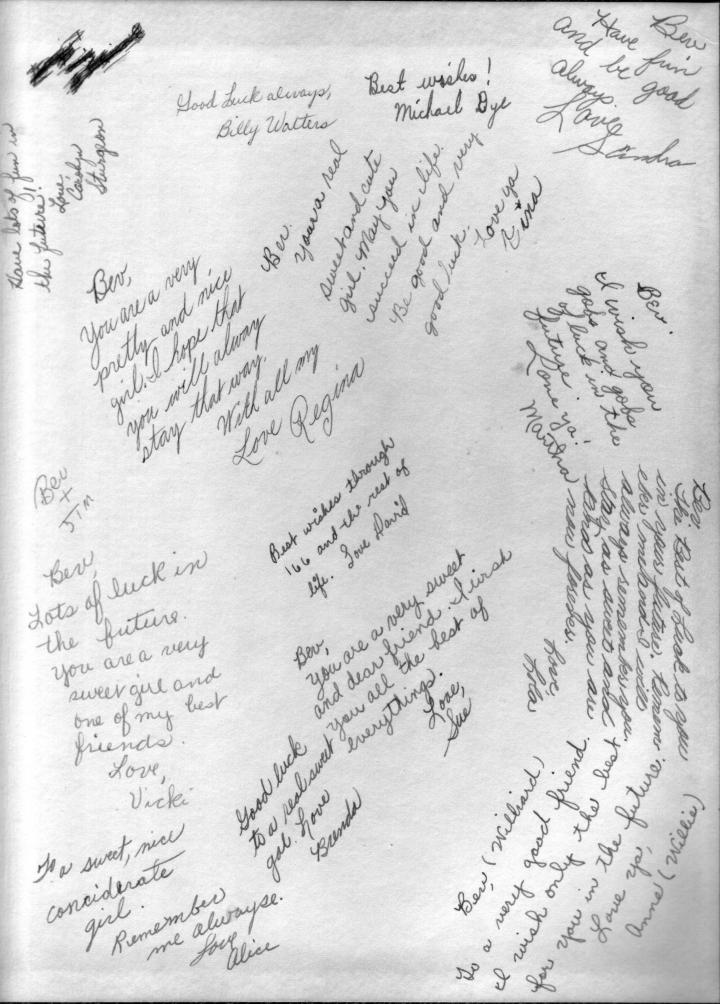 Bev
Have fun
and be good
always.
Love
Sandra
Best wishes!
Michael Dye
Good Luck always,
Billy Watters
Have lots of fun in
the future!
Love,
Carolyn
Sturgeon
Bev.
Your a real
sweet and cute
girl. May you
succeed in life.
Be good and very
good luck.
Love ya
Tina
Bev,
You are a very
pretty and nice
girl. I hope that
you will alway
stay that way.
With all my
Love Regina
Bev.
I wish you
gobs and gobs
of luck in the
future.
Love ya!
Martha
Bev
x
Jim
Best wishes through
'66 and the rest of
life. Love David
Bev,
The best of luck to you
in your future. Remem-
always remember you
stay as sweet and
as you are
now forever.
Love,
Lola
Bev,
Lots of luck in
the future.
You are a very
sweet girl and
one of my best
friends.
Love,
Vicki
Bev,
You are a very sweet
and dear friend. I wish
you all the best of
everythings.
Love,
Sue
Good luck
to a real sweet
gal. Love
Brenda
To a sweet, nice
conciderate
girl.
Remember
me alwayse.
Love
Alice
Bev, (Williard)
To a very good friend.
I wish only the best
for you in the future.
Love ya,
Anne (Willie)